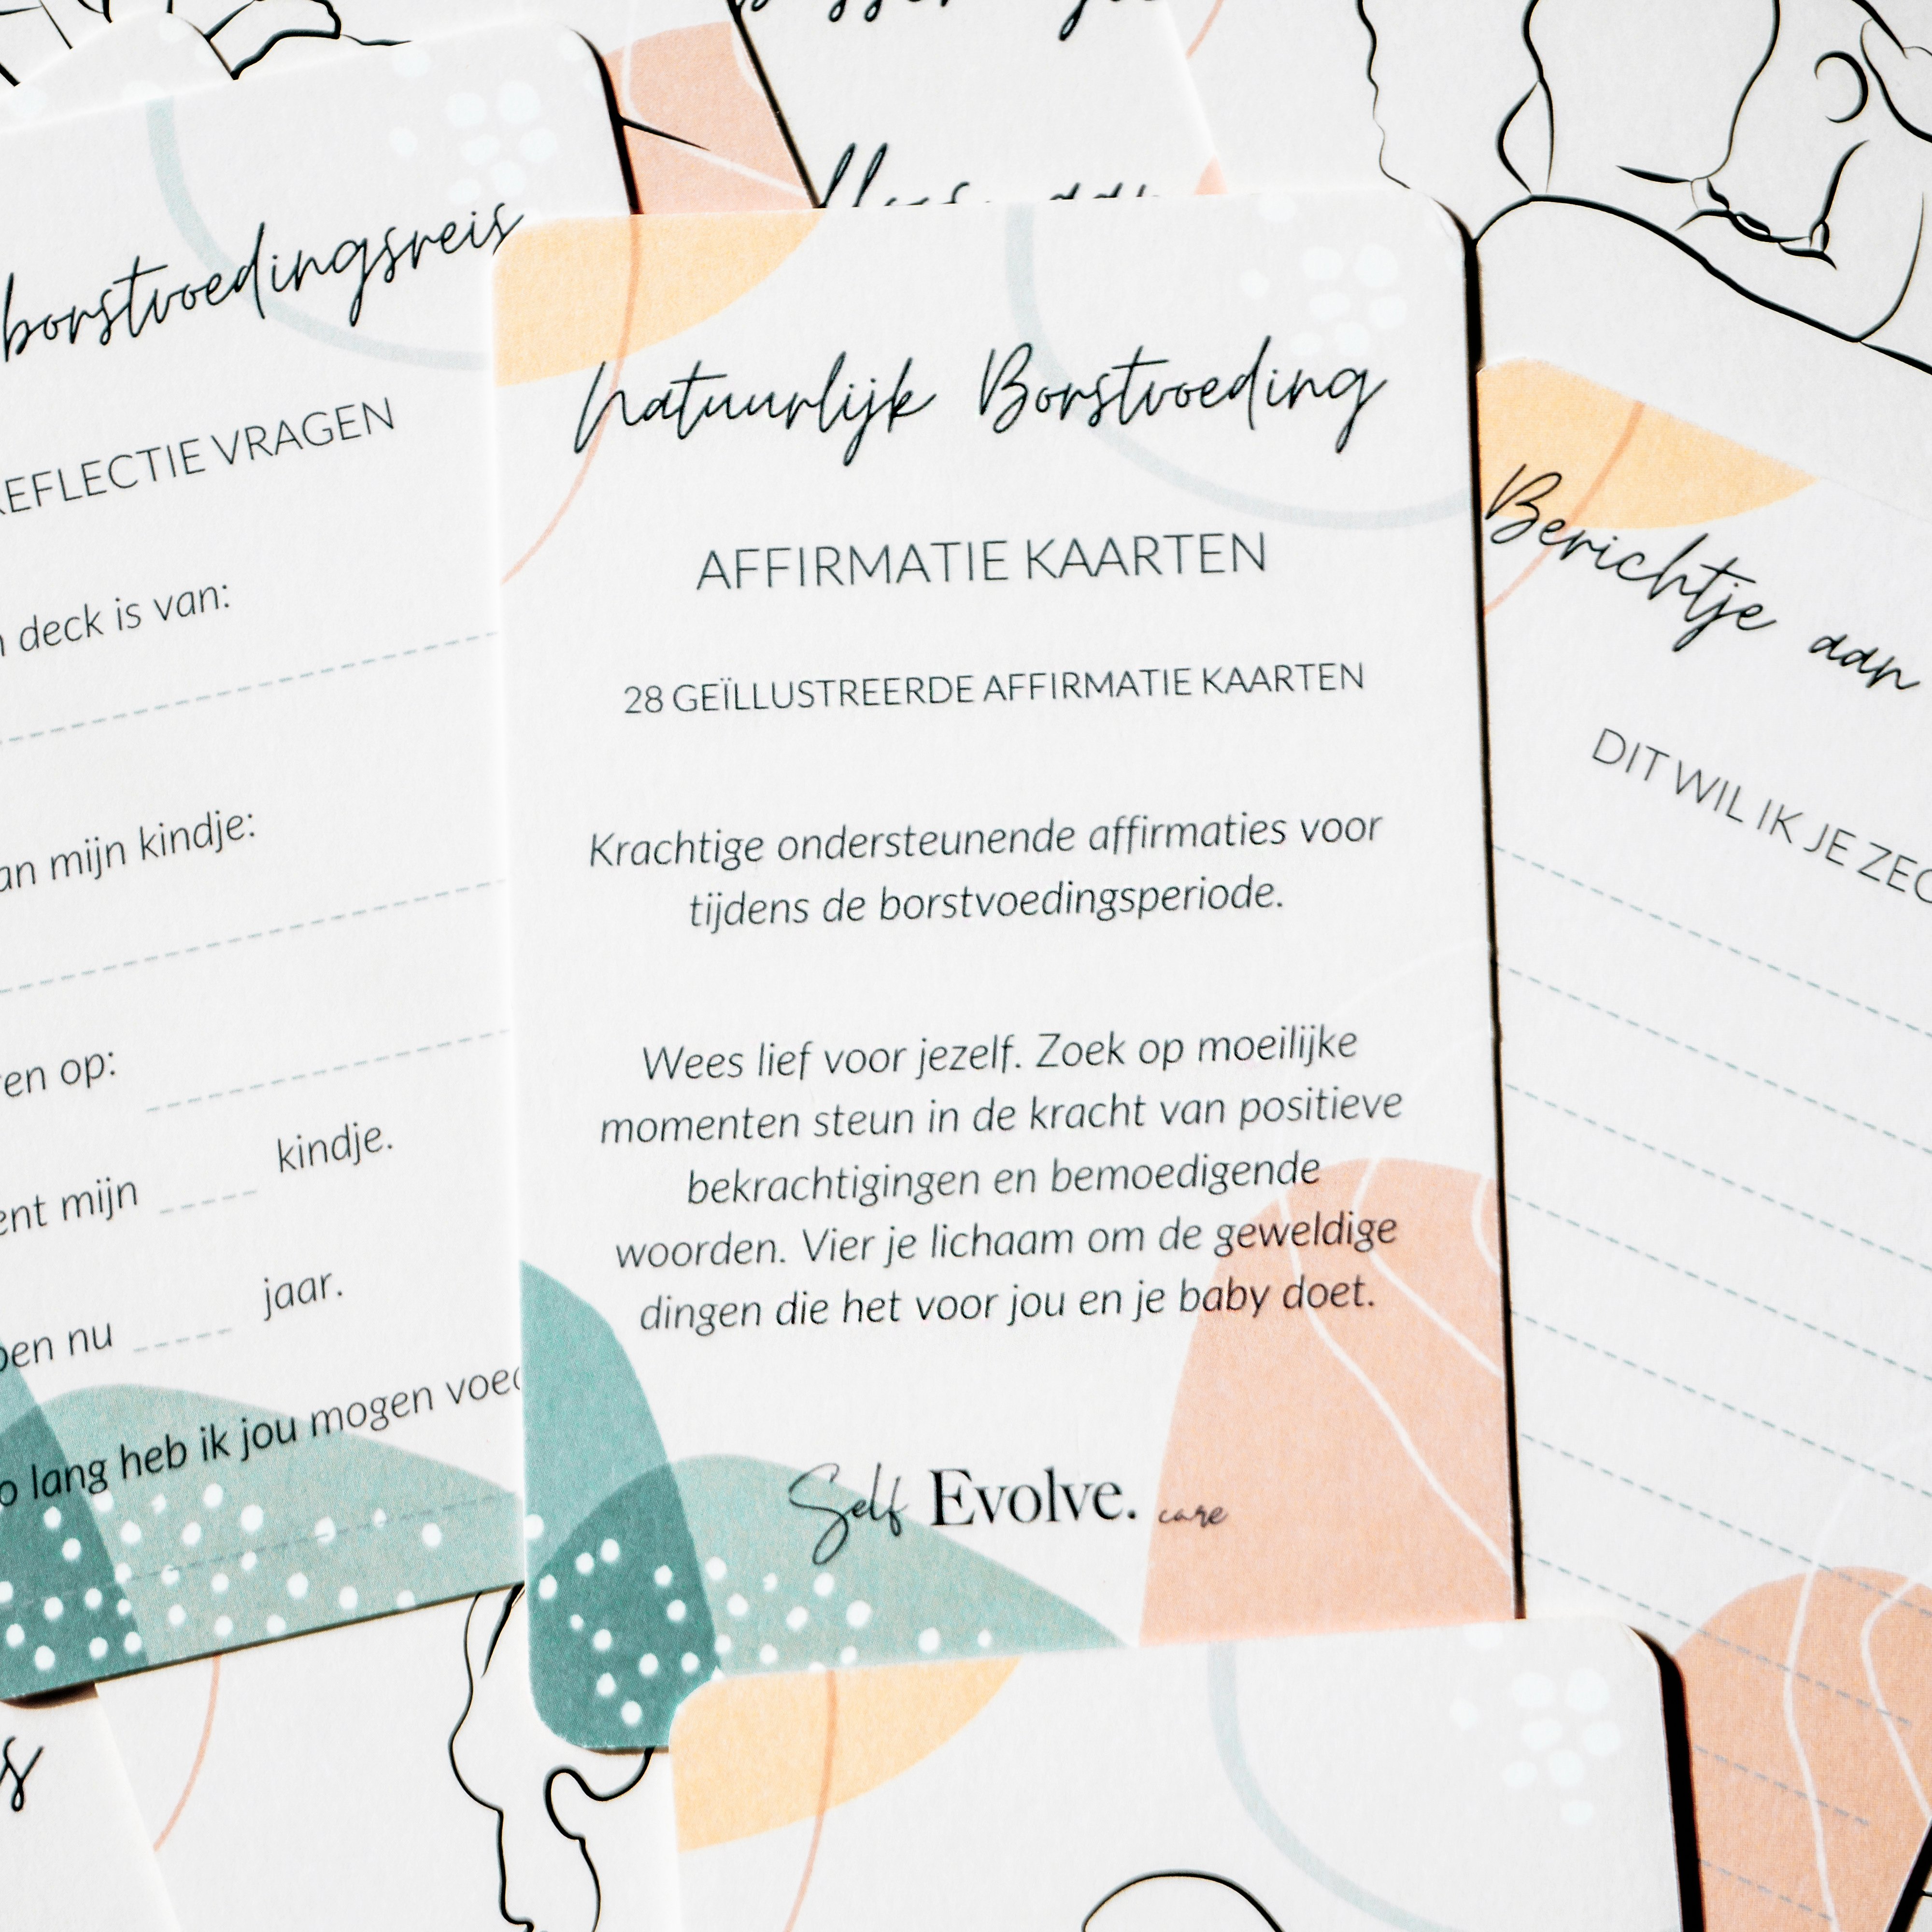 borstvoedingsreis
REFLECTIE VRAGEN
deck is van:
mijn kindje:
op:
mijn ____ kindje.
nu ____ jaar.
lang heb ik jou mogen
Natuurlijk Borstvoeding
AFFIRMATIE KAARTEN
28 GEÏLLUSTREERDE AFFIRMATIE KAARTEN
Krachtige ondersteunende affirmaties voor
tijdens de borstvoedingsperiode.
Wees lief voor jezelf. Zoek op moeilijke
momenten steun in de kracht van positieve
bekrachtigingen en bemoedigende
woorden. Vier je lichaam om de geweldige
dingen die het voor jou en je baby doet.
Self Evolve. care
Berichtje aan
DIT WIL IK JE